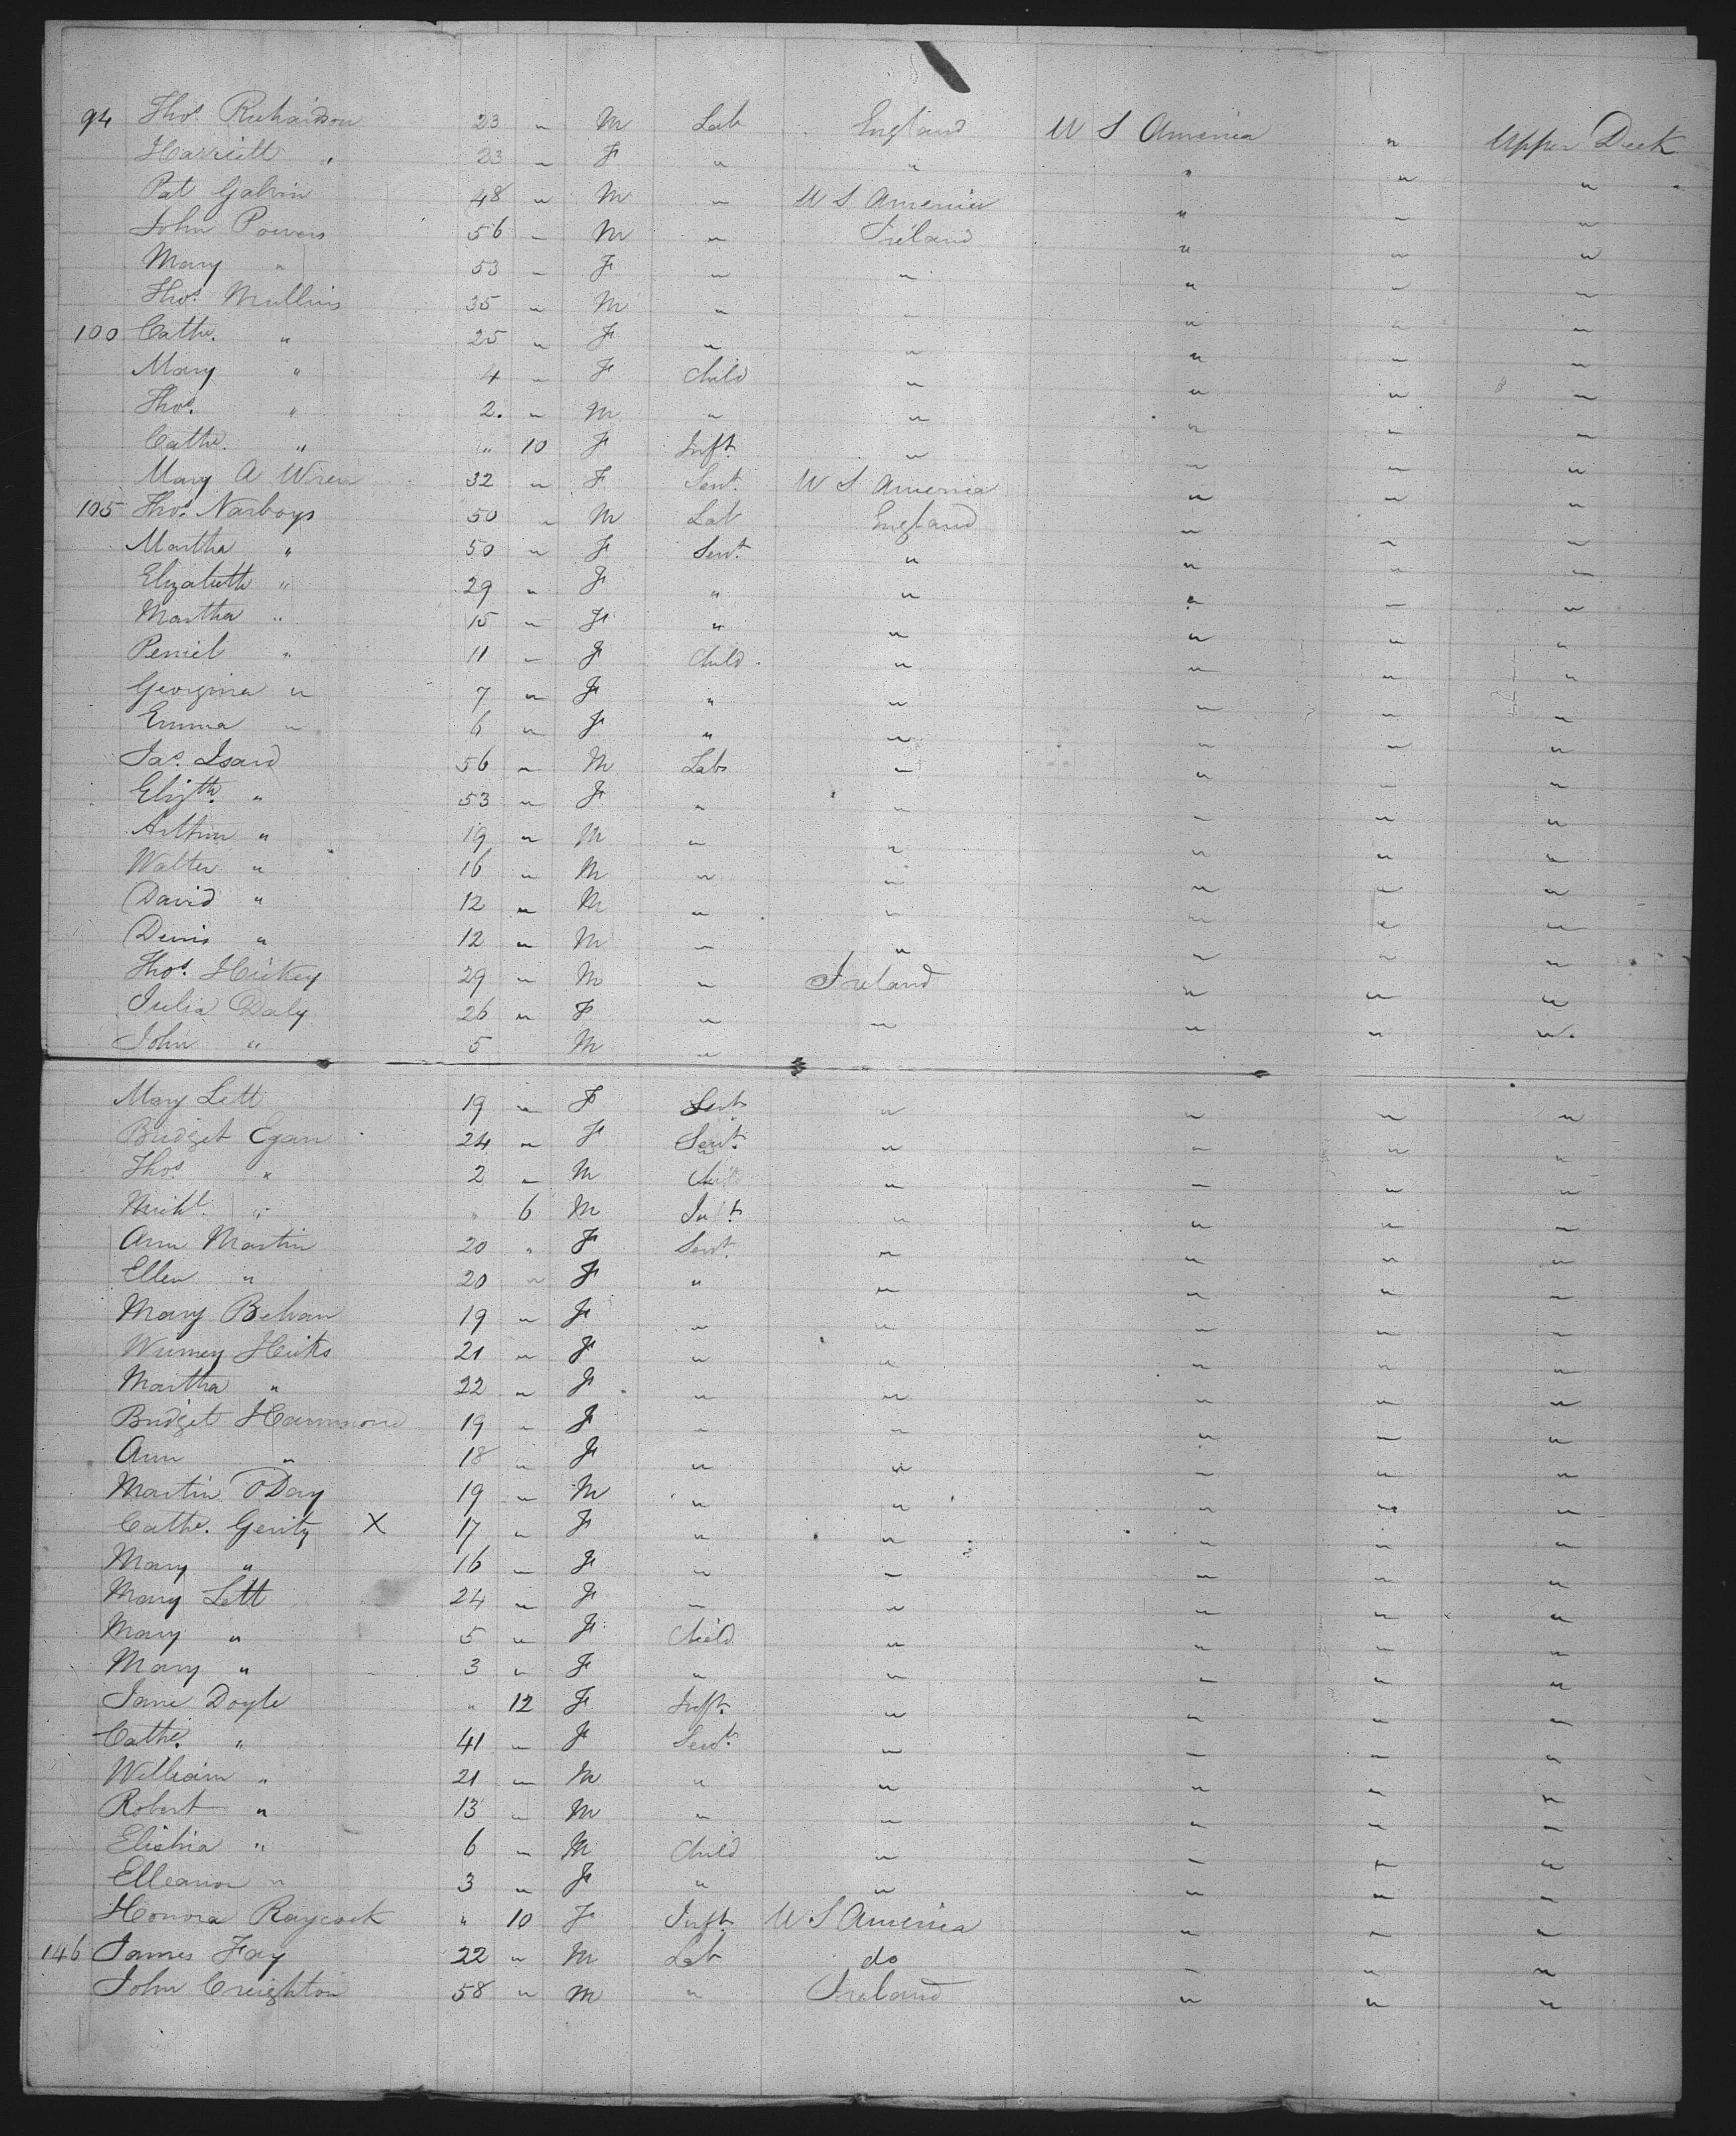 94 Thos. Richardson 23 " M Lab England U S America " Upper Deck
Harriett " 23 " F " " " " "
Pat Galvin 48 " M " U S America " " "
John Powers 56 " M " Ireland " " "
Mary " 53 " F " " " " "
Thos. Mullins 35 " M " " " " "
100 Cathe. " 25 " F " " " " "
Mary " 4 " F Child " " " "
Thos. " 2. " M " " " " "
Cathe. " " 10 F Inft. " " " "
Mary A Wren 32 " F Sevt. U S America " " "
105 Thos. Narboys 50 " M Lab England " " "
Martha " 50 " F Sevt. " " " "
Elizabeth " 29 " F " " " " "
Martha " 15 " F " " " " "
Peniel " 11 " F Child. " " " "
Georgina " 7 " F " " " " "
Emma " 6 " F " " " " "
Jas. Isard 56 " M Lab " " " "
Elizth. " 53 " F " " " " "
Arthur " 19 " M " " " " "
Walter " 16 " M " " " " "
David " 12 " M " " " " "
Denis " 12 " M " " " " "
Thos. Hickey 29 " M " Ireland " " "
Julia Daly 26 " F " " " " "
John " 5 M "
Mary Lett 19 " F Sevt. " " " "
Bridget Egan 24 " F Sevt. " " " "
Thos. " 2 " M Child " " " "
Michl. " " 6 M Inft. " " " "
Ann Martin 20 " F Sevt. " " " "
Ellen " 20 " F " " " " "
Mary Behan 19 " F " " " " "
Winney Hicks 21 " F " " " " "
Martha " 22 " F " " " " "
Bridget Hammond 19 " F " " " " "
Ann " 18 " F " " " " "
Martin ODay 19 " M " " " " "
Cathe. Gerity X 17 " F " " " " "
Mary " 16 " F " " " " "
Mary Lett 24 " F " " " " "
Mary " 5 " F Child " " " "
Mary " 3 " F " " " " "
Jane Doyle " 12 F Inft. " " " "
Cathe. " 41 " F Sevt. " " " "
William " 21 " M " " " " "
Robert " 13 " M " " " " "
Elishia " 6 " M Child " " " "
Elleanor " 3 " F " " " " "
Honora Raycock " 10 F Inft. U S America " " "
146 James Fay 22 " M Lab do " " "
John Creighton 58 " M " Ireland " " "